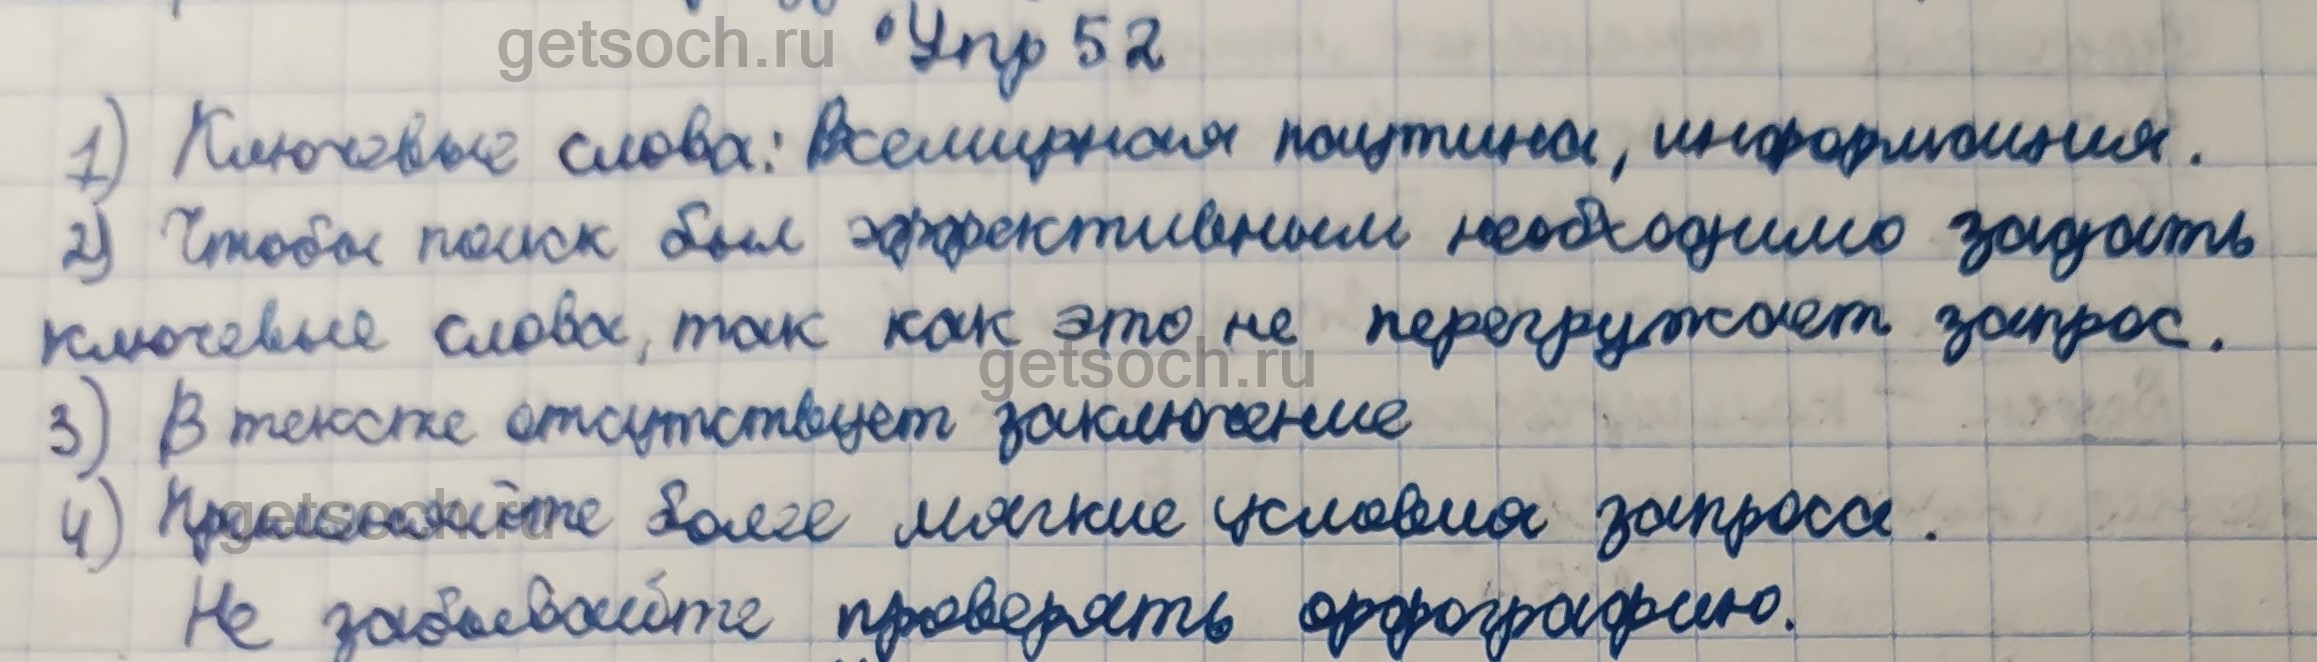 Упр 52
1) Ключевые слова: Всемирная паутина, информация.
2) Чтобы поиск был эффективным необходимо задать
ключевые слова, так как это не перегружает запрос.
3) В тексте отсутствует заключение
4) более мягкие условия запроса.
Не забывайте проверять орфографию.
getsoch.ru
getsoch.ru
getsoch.ru